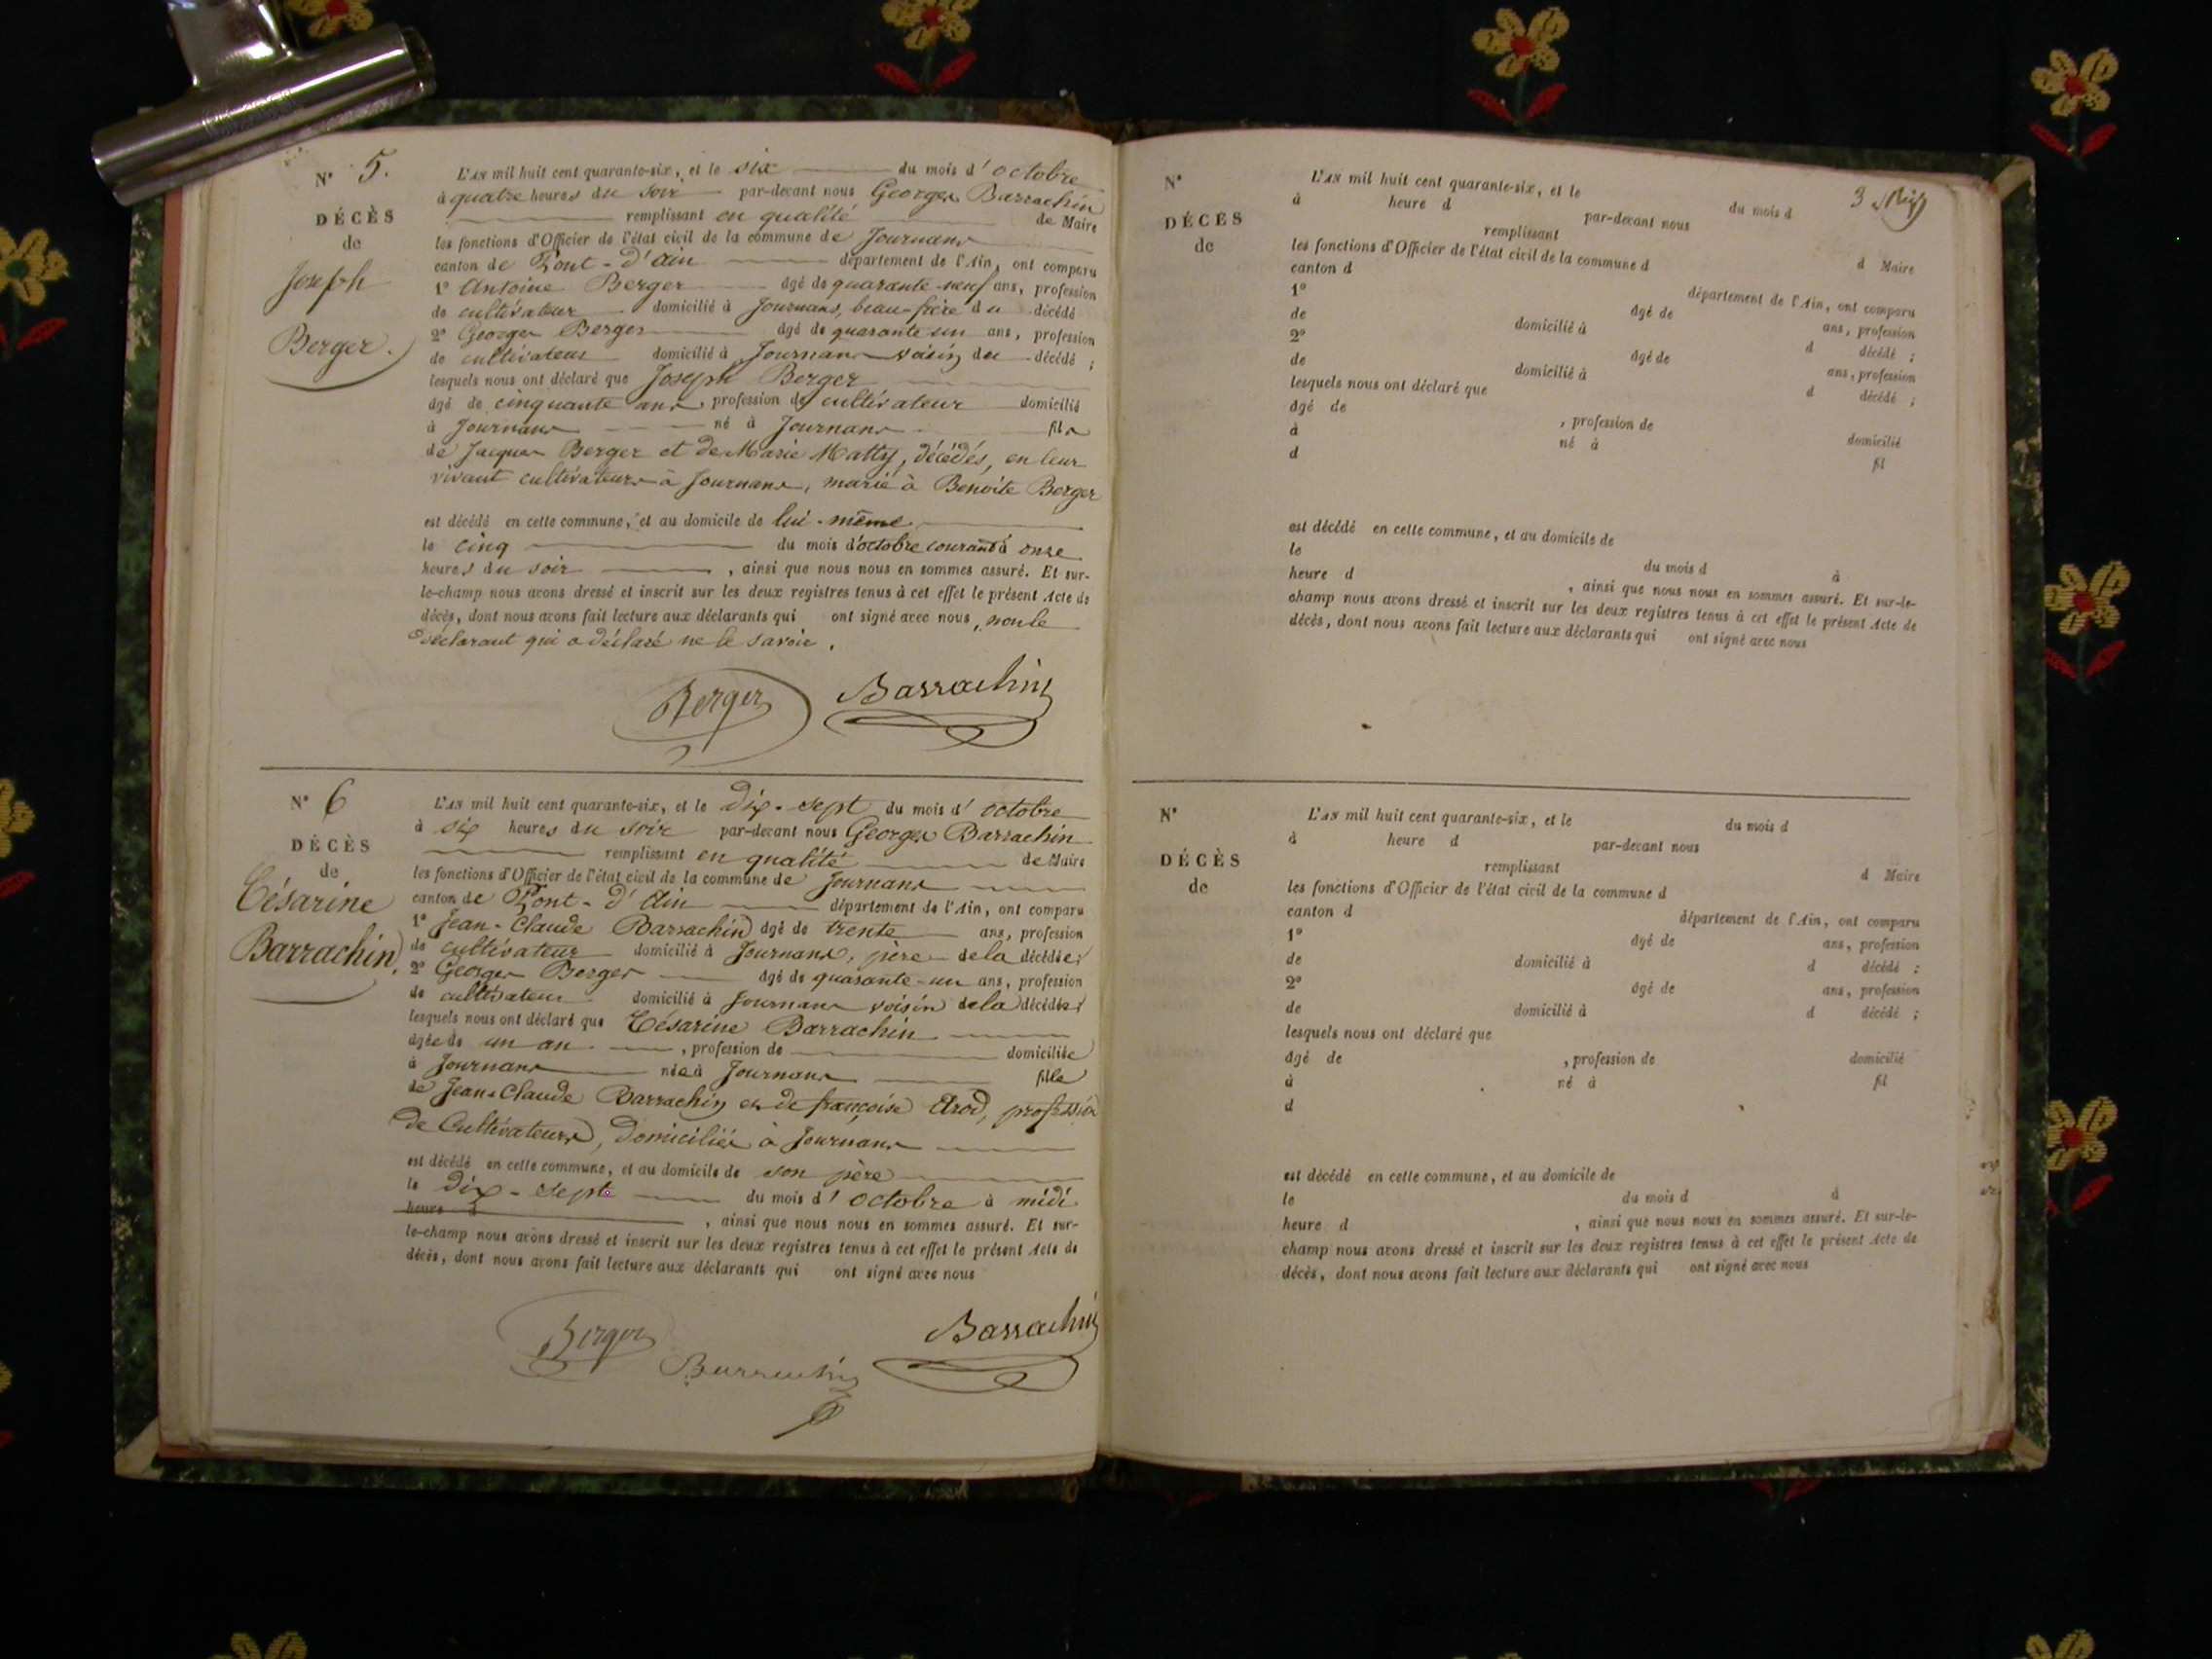 N° 5.
DÉCÈS
de
Joseph
Berger.
L'AN mil huit cent quarante-six, et le six du mois d'octobre
à quatre heures du soir par-devant nous Georges Barrachin
remplissant en qualité de Maire
les fonctions d'Officier de l'état civil de la commune de Journans
canton de Pont-d'ain département de l'Ain, ont comparu
1° Antoine Berger âgé de quarante-neuf ans, profession
de cultivateur domicilié à Journans, beau-frère du décédé
2° Georges Berger âgé de quarante un ans, profession
de cultivateur domicilié à Journans voisin du décédé ;
lesquels nous ont déclaré que Joseph Berger
âgé de cinquante ans, profession de cultivateur domicilié
à Journans né à Journans fils
de Jacques Berger et de Marie Matty, décédés, en leur
vivant cultivateurs à Journans, marié à Benoite Berger
est décédé en cette commune, et au domicile de lui-même
le cinq du mois d'octobre courant à onze
heures du soir, ainsi que nous nous en sommes assuré. Et sur-
le-champ nous avons dressé et inscrit sur les deux registres tenus à cet effet le présent Acte de
décès, dont nous avons fait lecture aux déclarants qui ont signé avec nous, non le
déclarant qui a déclaré ne le savoir.
Berger Barrachin
N° 6
DÉCÈS
de
Césarine
Barrachin.
L'AN mil huit cent quarante-six, et le dix-sept du mois d'octobre
à six heures du soir par-devant nous Georges Barrachin
remplissant en qualité de Maire
les fonctions d'Officier de l'état civil de la commune de Journans
canton de Pont-d'Ain département de l'Ain, ont comparu
1° Jean-Claude Barrachin âgé de trente ans, profession
de cultivateur domicilié à Journans, père de la décédée ;
2° Georges Berger âgé de quarante-un ans, profession
de cultivateur domicilié à Journans voisin de la décédée ;
lesquels nous ont déclaré que Césarine Barrachin
âgée de un an, profession de domiciliée
à Journans née à Journans fille
de Jean-Claude Barrachin et de françoise Arod, profession
de Cultivateurs, Domiciliés à Journans
est décédé en cette commune, et au domicile de son père
le dix-sept du mois d'octobre à midi
heure d, ainsi que nous nous en sommes assuré. Et sur-
le-champ nous avons dressé et inscrit sur les deux registres tenus à cet effet le présent Acte de
décès, dont nous avons fait lecture aux déclarants qui ont signé avec nous
Berger Barrachin Barrachin
3
N°
DÉCÈS
de
L'AN mil huit cent quarante-six, et le du mois d
à heure d par-devant nous
remplissant d Maire
les fonctions d'Officier de l'état civil de la commune d
canton d département de l'Ain, ont comparu
1° âgé de ans, profession
de domicilié à d décédé ;
2° âgé de ans, profession
de domicilié à d décédé ;
lesquels nous ont déclaré que
âgé de , profession de domicilié
à né à fil
d
est décédé en cette commune, et au domicile de
le du mois d à
heure d , ainsi que nous nous en sommes assuré. Et sur-le-
champ nous avons dressé et inscrit sur les deux registres tenus à cet effet le présent Acte de
décès, dont nous avons fait lecture aux déclarants qui ont signé avec nous
N°
DÉCÈS
de
L'AN mil huit cent quarante-six, et le du mois d
à heure d par-devant nous
remplissant d Maire
les fonctions d'Officier de l'état civil de la commune d
canton d département de l'Ain, ont comparu
1° âgé de ans, profession
de domicilié à d décédé ;
2° âgé de ans, profession
de domicilié à d décédé ;
lesquels nous ont déclaré que
âgé de , profession de domicilié
à né à fil
d
est décédé en cette commune, et au domicile de
le du mois d à
heure d , ainsi que nous nous en sommes assuré. Et sur-le-
champ nous avons dressé et inscrit sur les deux registres tenus à cet effet le présent Acte de
décès, dont nous avons fait lecture aux déclarants qui ont signé avec nous